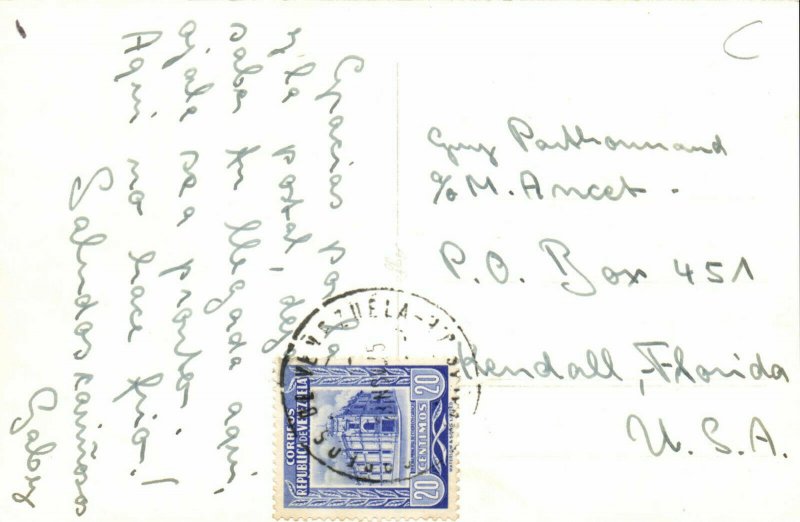 Gracias por la
y la postal, dej
saber tu llegada aqui,
ojala sea pronto!
Aqui no hace frio!
Saludos cariñosos
Gaboy
Guy
c/o M. Ancet.
P.O. Box 451
Kendall, Florida
U.S.A.
VENEZUELA
CORREOS
REPUBLICA DE VENEZUELA
20
CENTIMOS
20